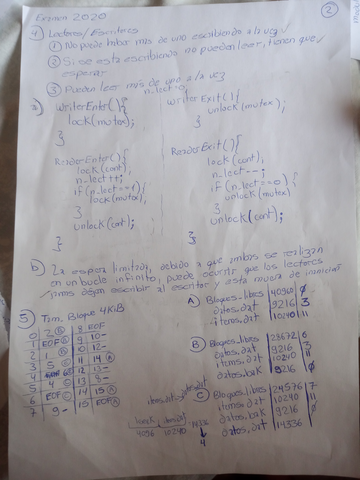 Examen 2020
②
4) Lectores/Escritores
① No puede haber más de uno escribiendo a la vez
② Si se está escribiendo no pueden leer, tienen que
esperar
③ Pueden leer más de uno a la vez
n_lect=0;
a) WriterEnter(){
lock(mutex);
}
WriterExit(){
unlock(mutex);
}
ReaderEnter(){
lock(cont);
n_lect++;
if(n_lect==1){
lock(mutex);
}
unlock(cont);
}
ReaderExit(){
lock(cont);
n_lect--;
if(n_lect==0){
unlock(mutex);
}
unlock(cont);
}
b) La espera limitada, debido a que ambos se realizan
en un bucle infinito, puede ocurrir que los lectores
dejan escribir al escritor y esta muera de inanición
5) Tam. Bloque 4KiB
0 2
1 EOF
2 1
3 5
5 4
6 EOF
7 9
8 EOF
9 10
10 12
11 14
12 13
14 15
15 EOF
A Bloques_libres 40960
datos.dat 9216 3
items.dat 10240 11
B Bloques_libres 28672 6
datos.dat 9216 3
items.dat 10240 11
datos.bak 9216
C Bloques_libres 24576 7
items.dat 10240 11
datos.bak 9216
datos.dat 14336
4096 10240 14336
4